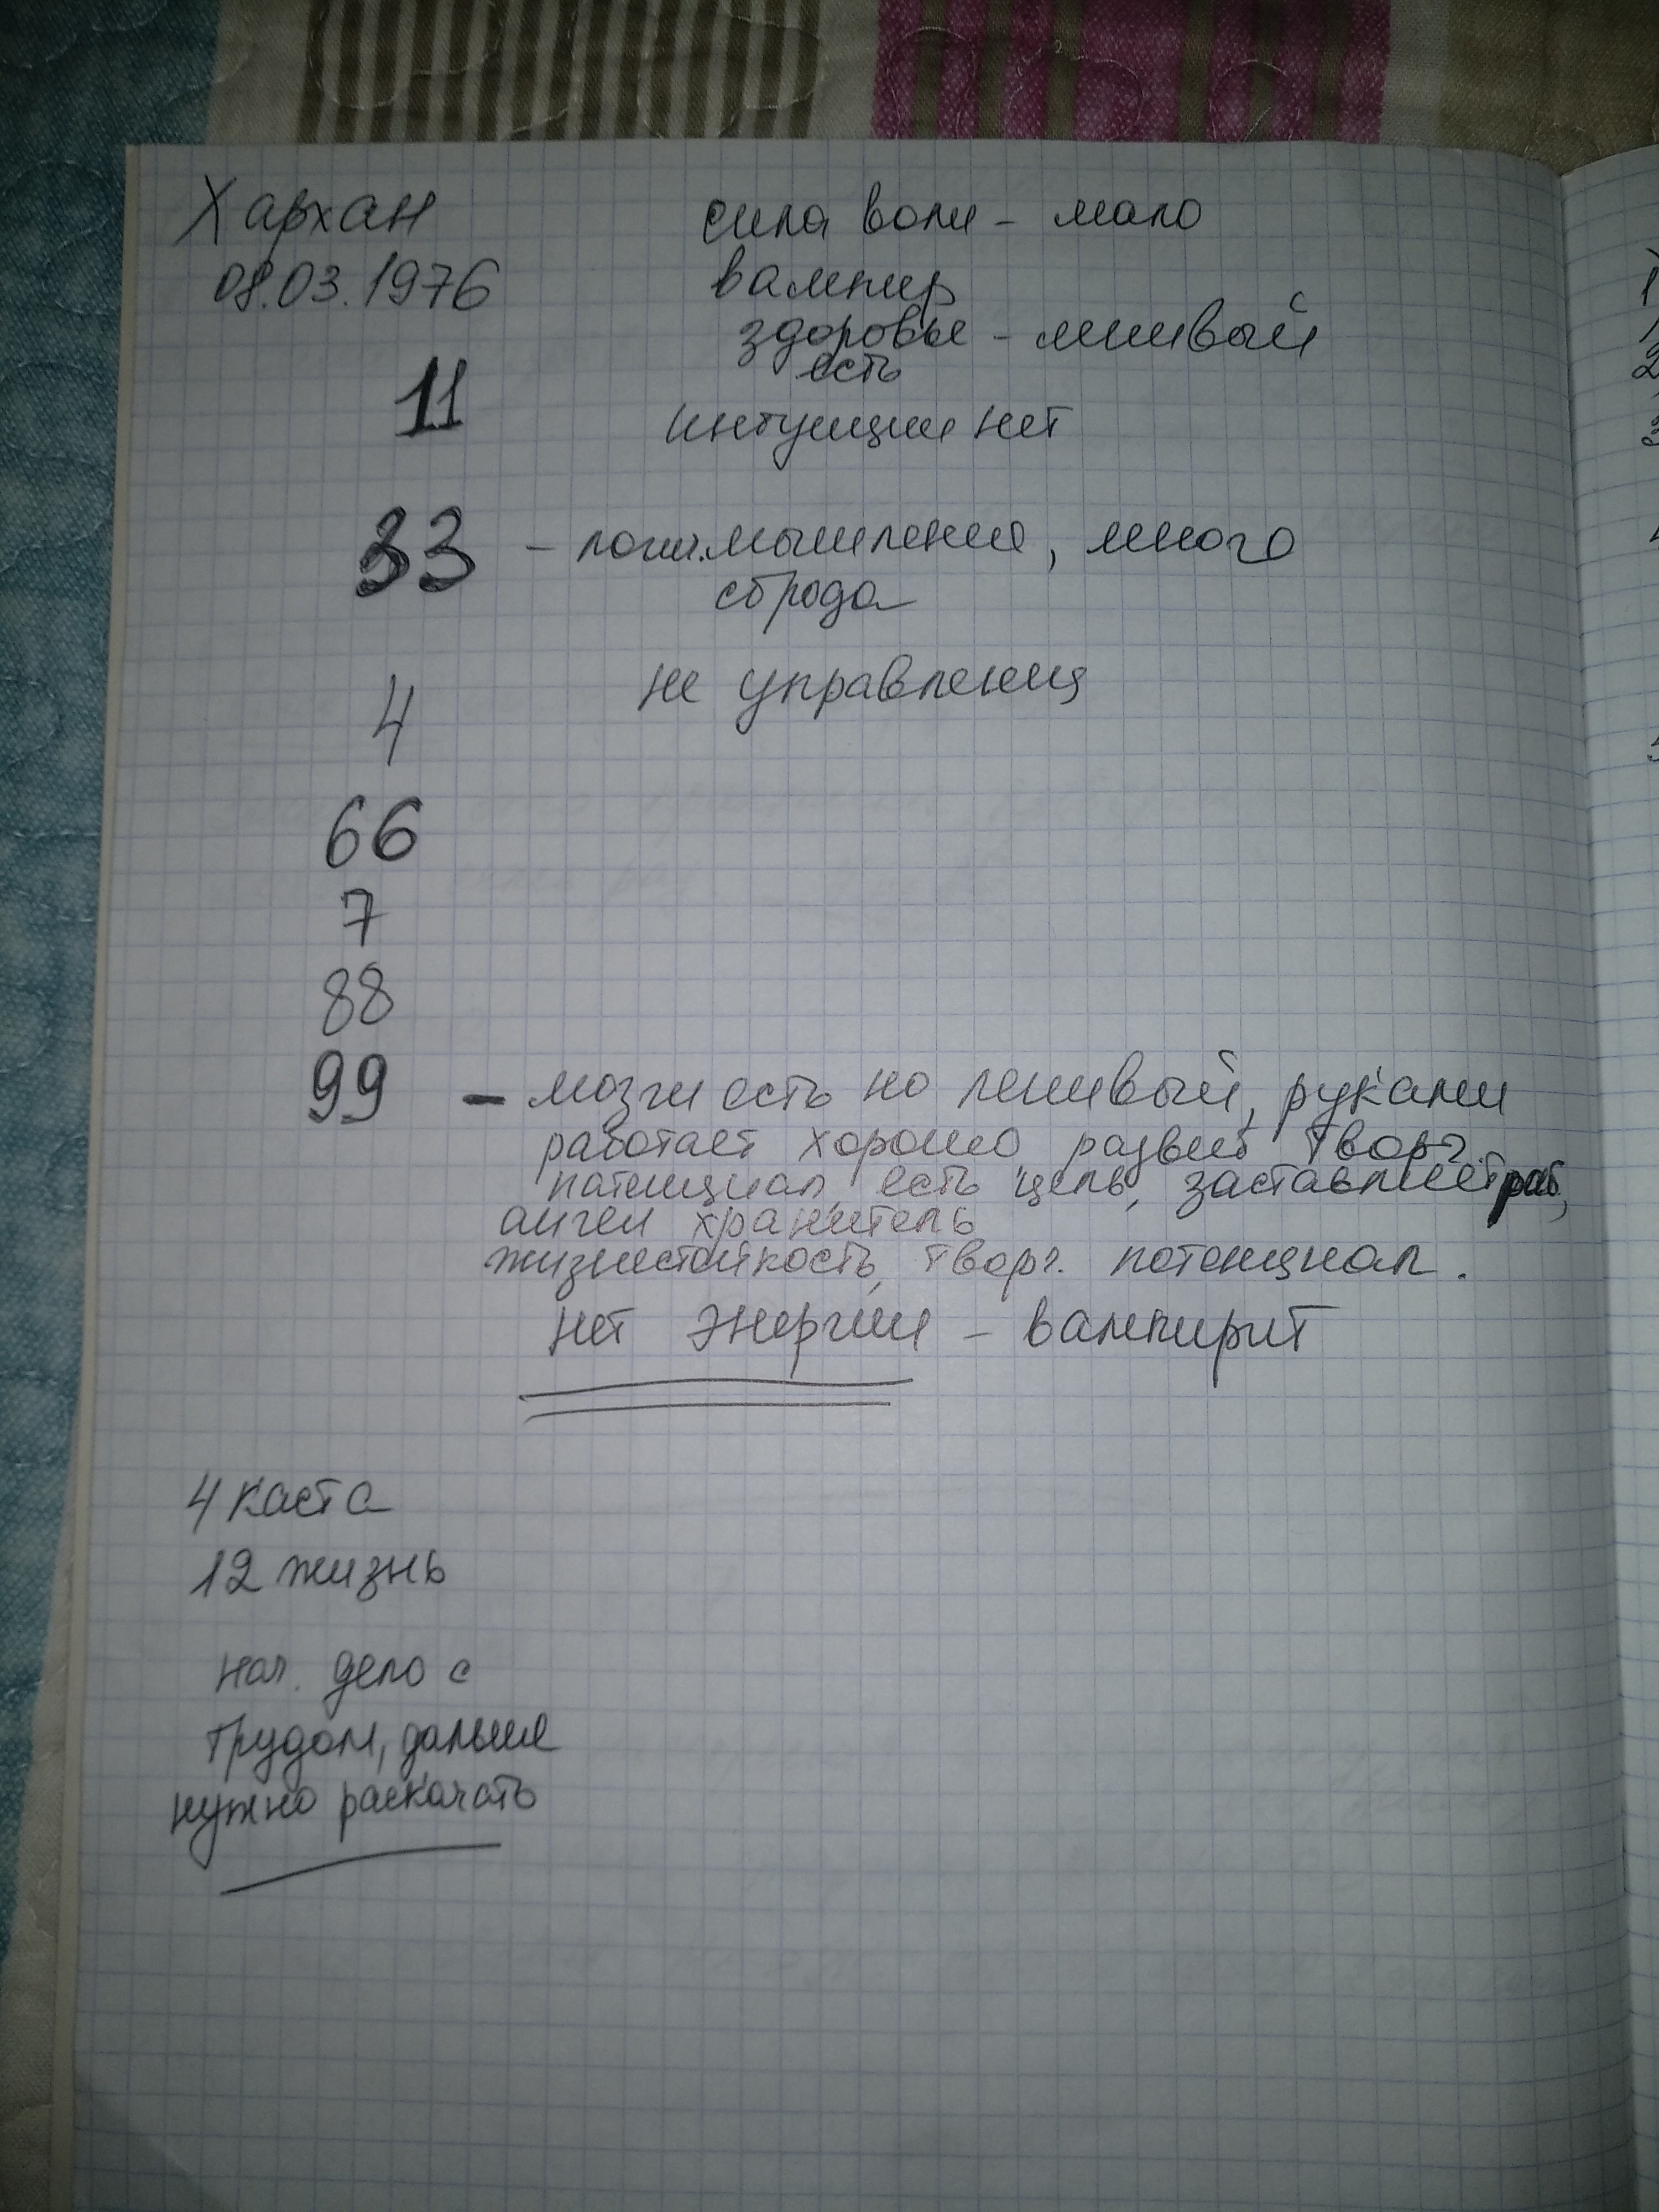 Хархан
08.03.1976
сила воли - мало
вампир
здоровье - ленивый
есть
11
интуиции нет
33 - логич. мышление, много
сброда
4
не управленец
66
7
88
99 - мозги есть но ленивый, руками
работает хорошо, развит творч.
потенциал, есть цель, заставляет раб,
ангел хранитель
жизнестойкость, творч. потенциал.
нет энергии - вампирит
4 каста
12 жизнь
нач. дело с
трудом, дальше
нужно раскачать